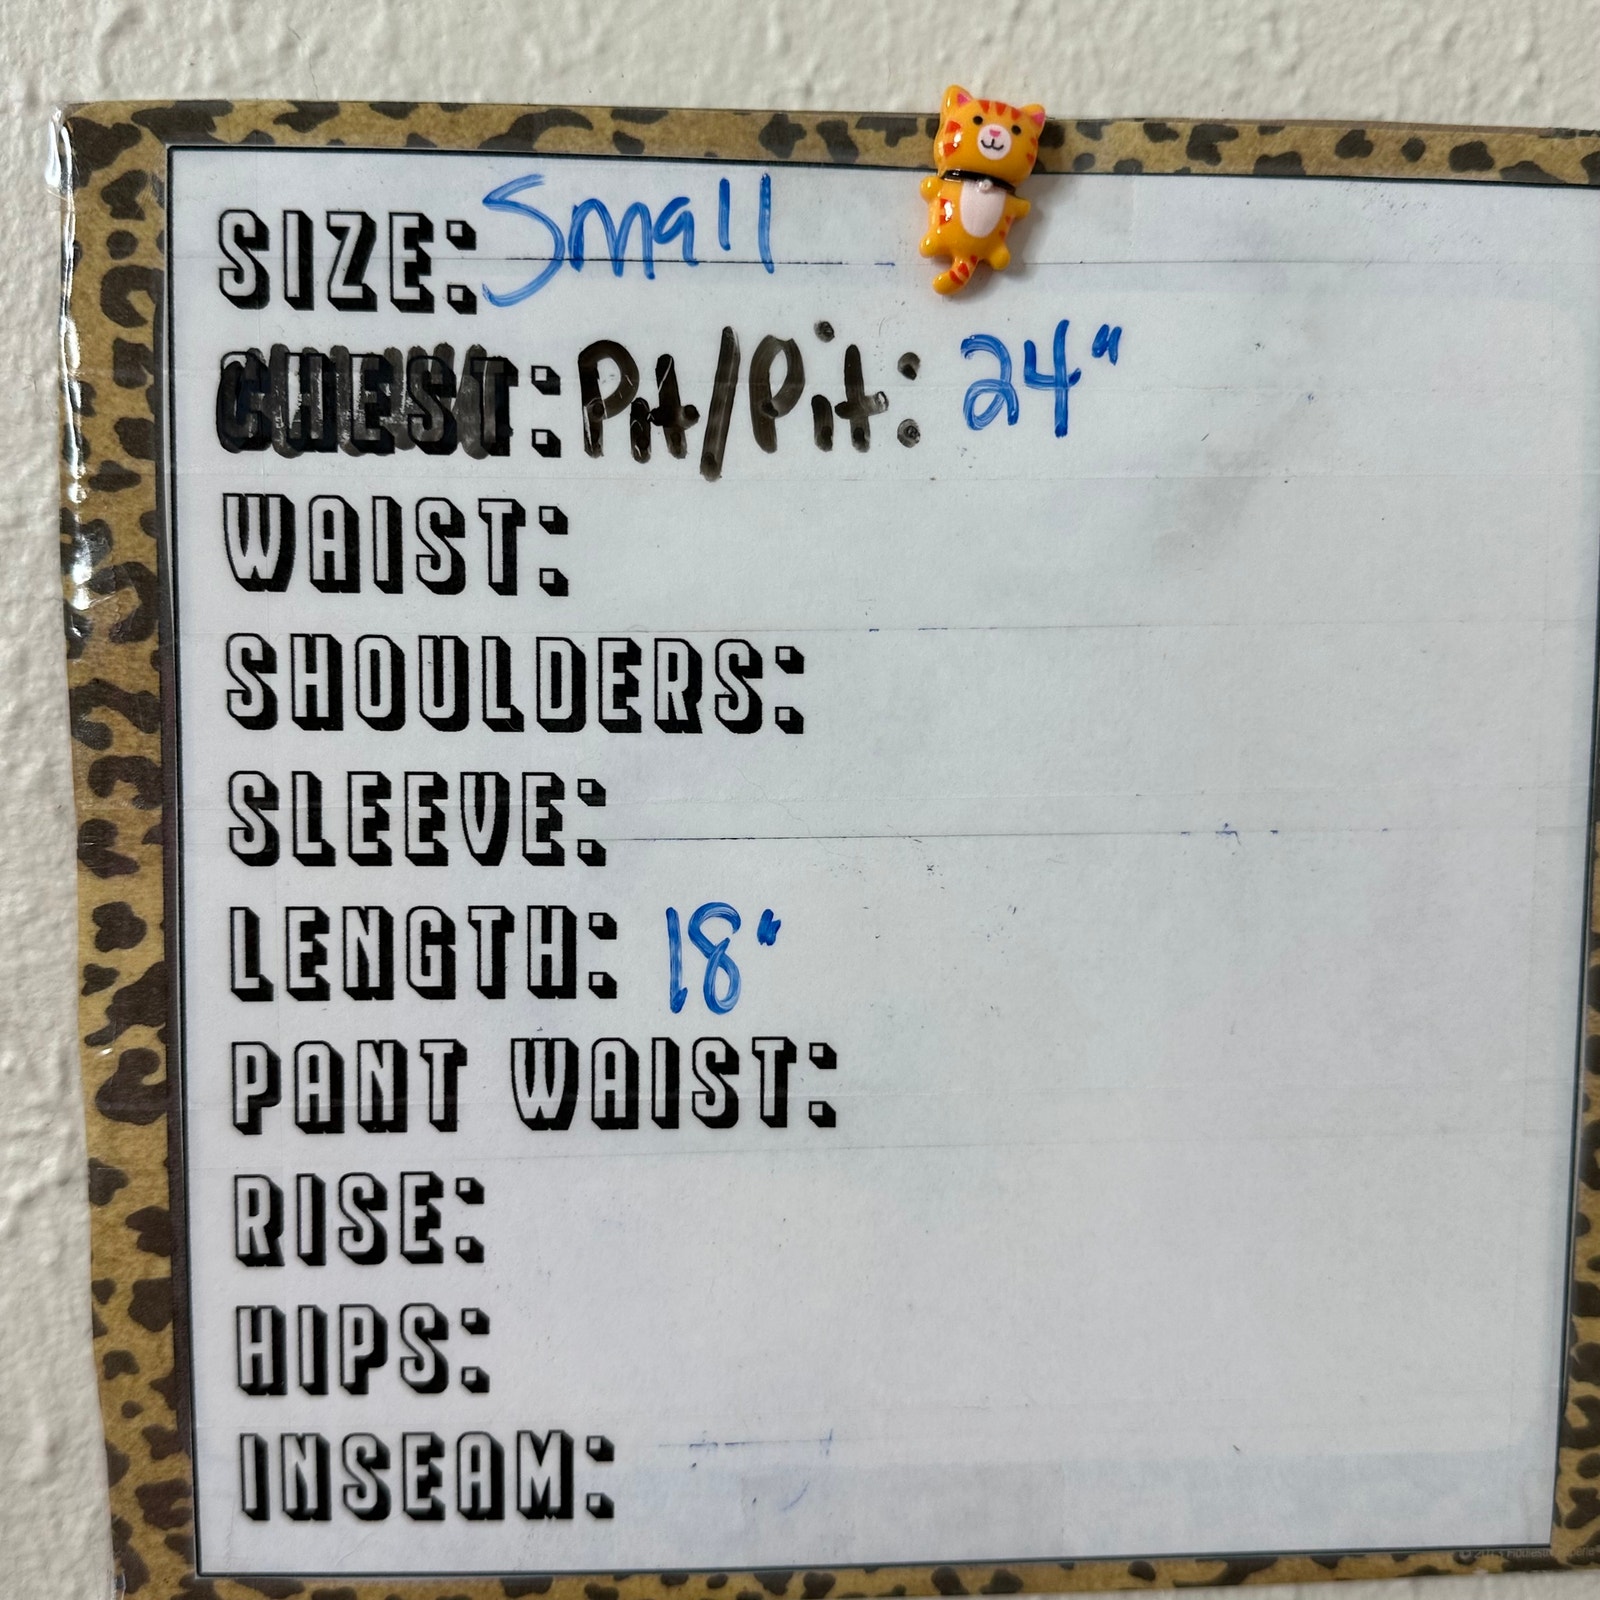 SIZE: Small
CHEST: Pit/Pit: 24"
WAIST:
SHOULDERS:
SLEEVE:
LENGTH: 18"
PANT WAIST:
RISE:
HIPS:
INSEAM: